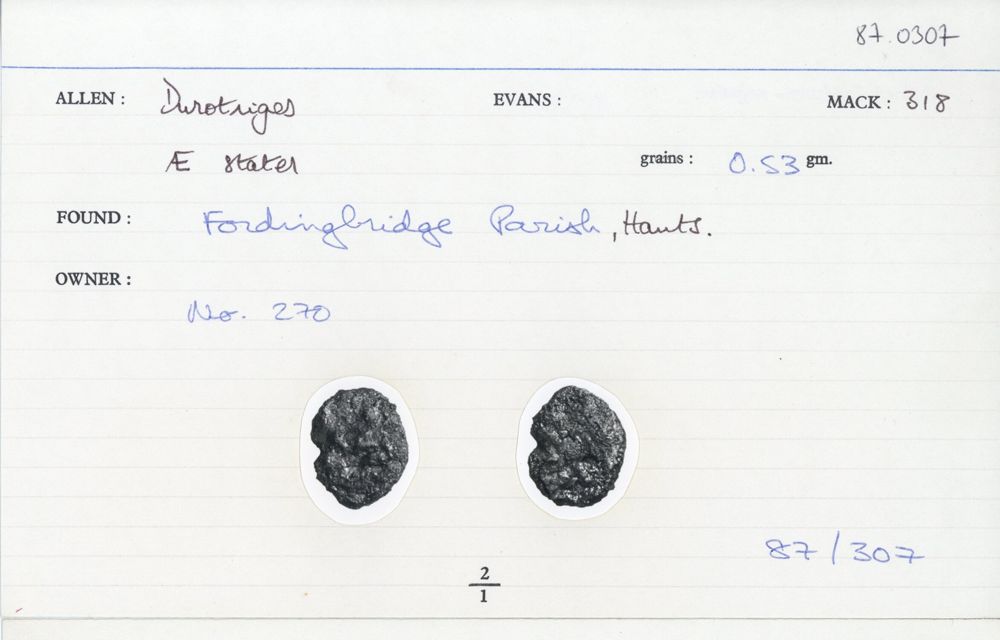 87.0307
ALLEN : Durotriges EVANS : MACK : 318
Æ stater grains : 0.53 gm.
FOUND : Fordingbridge Parish, Hants.
OWNER :
No. 270
87/307
2
1